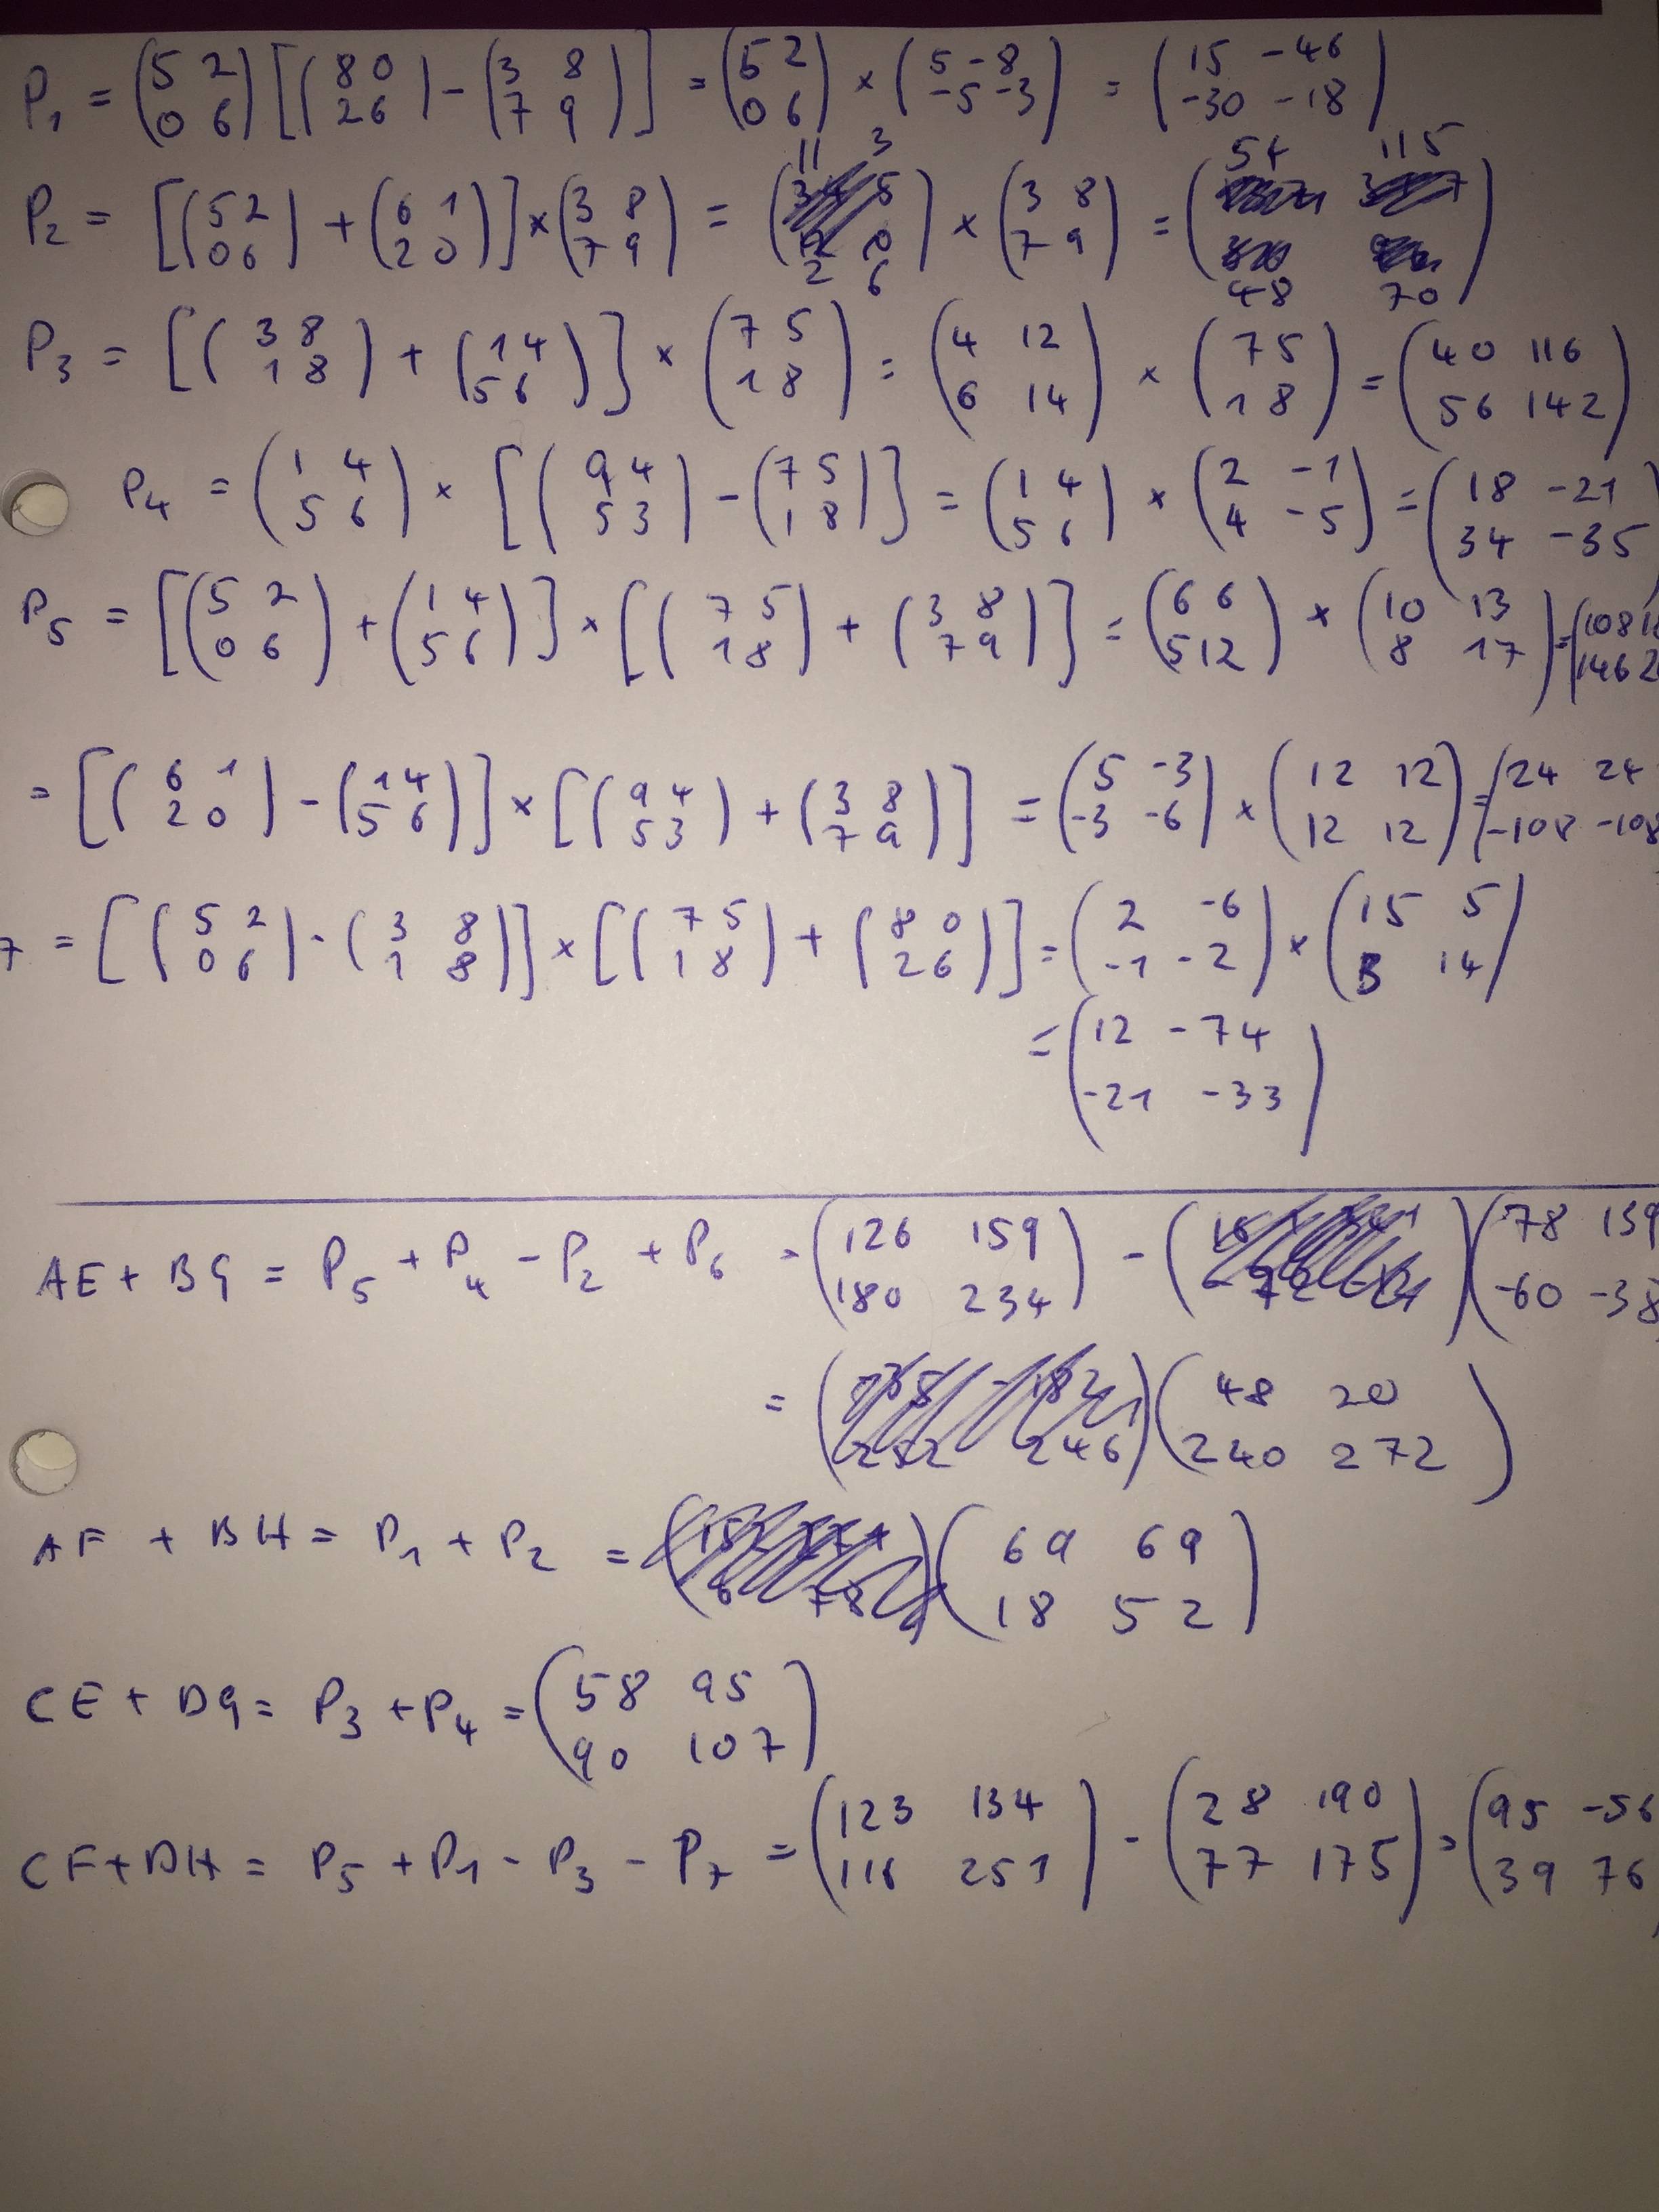 P₁ = (5 2 / 0 6) [(8 0 / 2 6) - (3 8 / 7 9)] = (5 2 / 0 6) × (5 -8 / -5 -3) = (15 -46 / -30 -18)
P₂ = [(5 2 / 0 6) + (6 1 / 2 0)] × (3 8 / 7 9) = (11 3 / 2 6) × (3 8 / 7 9) = (54 115 / 48 70)
P₃ = [(3 8 / 1 8) + (1 4 / 5 6)] × (7 5 / 1 8) = (4 12 / 6 14) × (7 5 / 1 8) = (40 116 / 56 142)
P₄ = (1 4 / 5 6) × [(9 4 / 5 3) - (7 5 / 1 8)] = (1 4 / 5 6) × (2 -1 / 4 -5) = (18 -21 / 34 -35
P₅ = [(5 2 / 0 6) + (1 4 / 5 6)] × [(7 5 / 1 8) + (3 8 / 7 9)] = (6 6 / 5 12) × (10 13 / 8 17) = (108 1 / 146 2
= [(6 1 / 2 0) - (1 4 / 5 6)] × [(9 4 / 5 3) + (3 8 / 7 9)] = (5 -3 / -3 -6) × (12 12 / 12 12) = (24 24 / -108 -108
7 = [(5 2 / 0 6) - (3 8 / 1 8)] × [(7 5 / 1 8) + (8 0 / 2 6)] = (2 -6 / -1 -2) × (15 5 / 3 14)
= (12 -74 / -21 -33)
AE + BG = P₅ + P₄ - P₂ + P₆ = (126 159 / 180 234) - (78 139 / -60 -38)
= (48 20 / 240 272)
AF + BH = P₁ + P₂ = (69 69 / 18 52)
CE + DG = P₃ + P₄ = (58 95 / 90 107)
CF + DH = P₅ + P₁ - P₃ - P₇ = (123 134 / 116 251) - (28 190 / 77 175) = (95 -56 / 39 76)